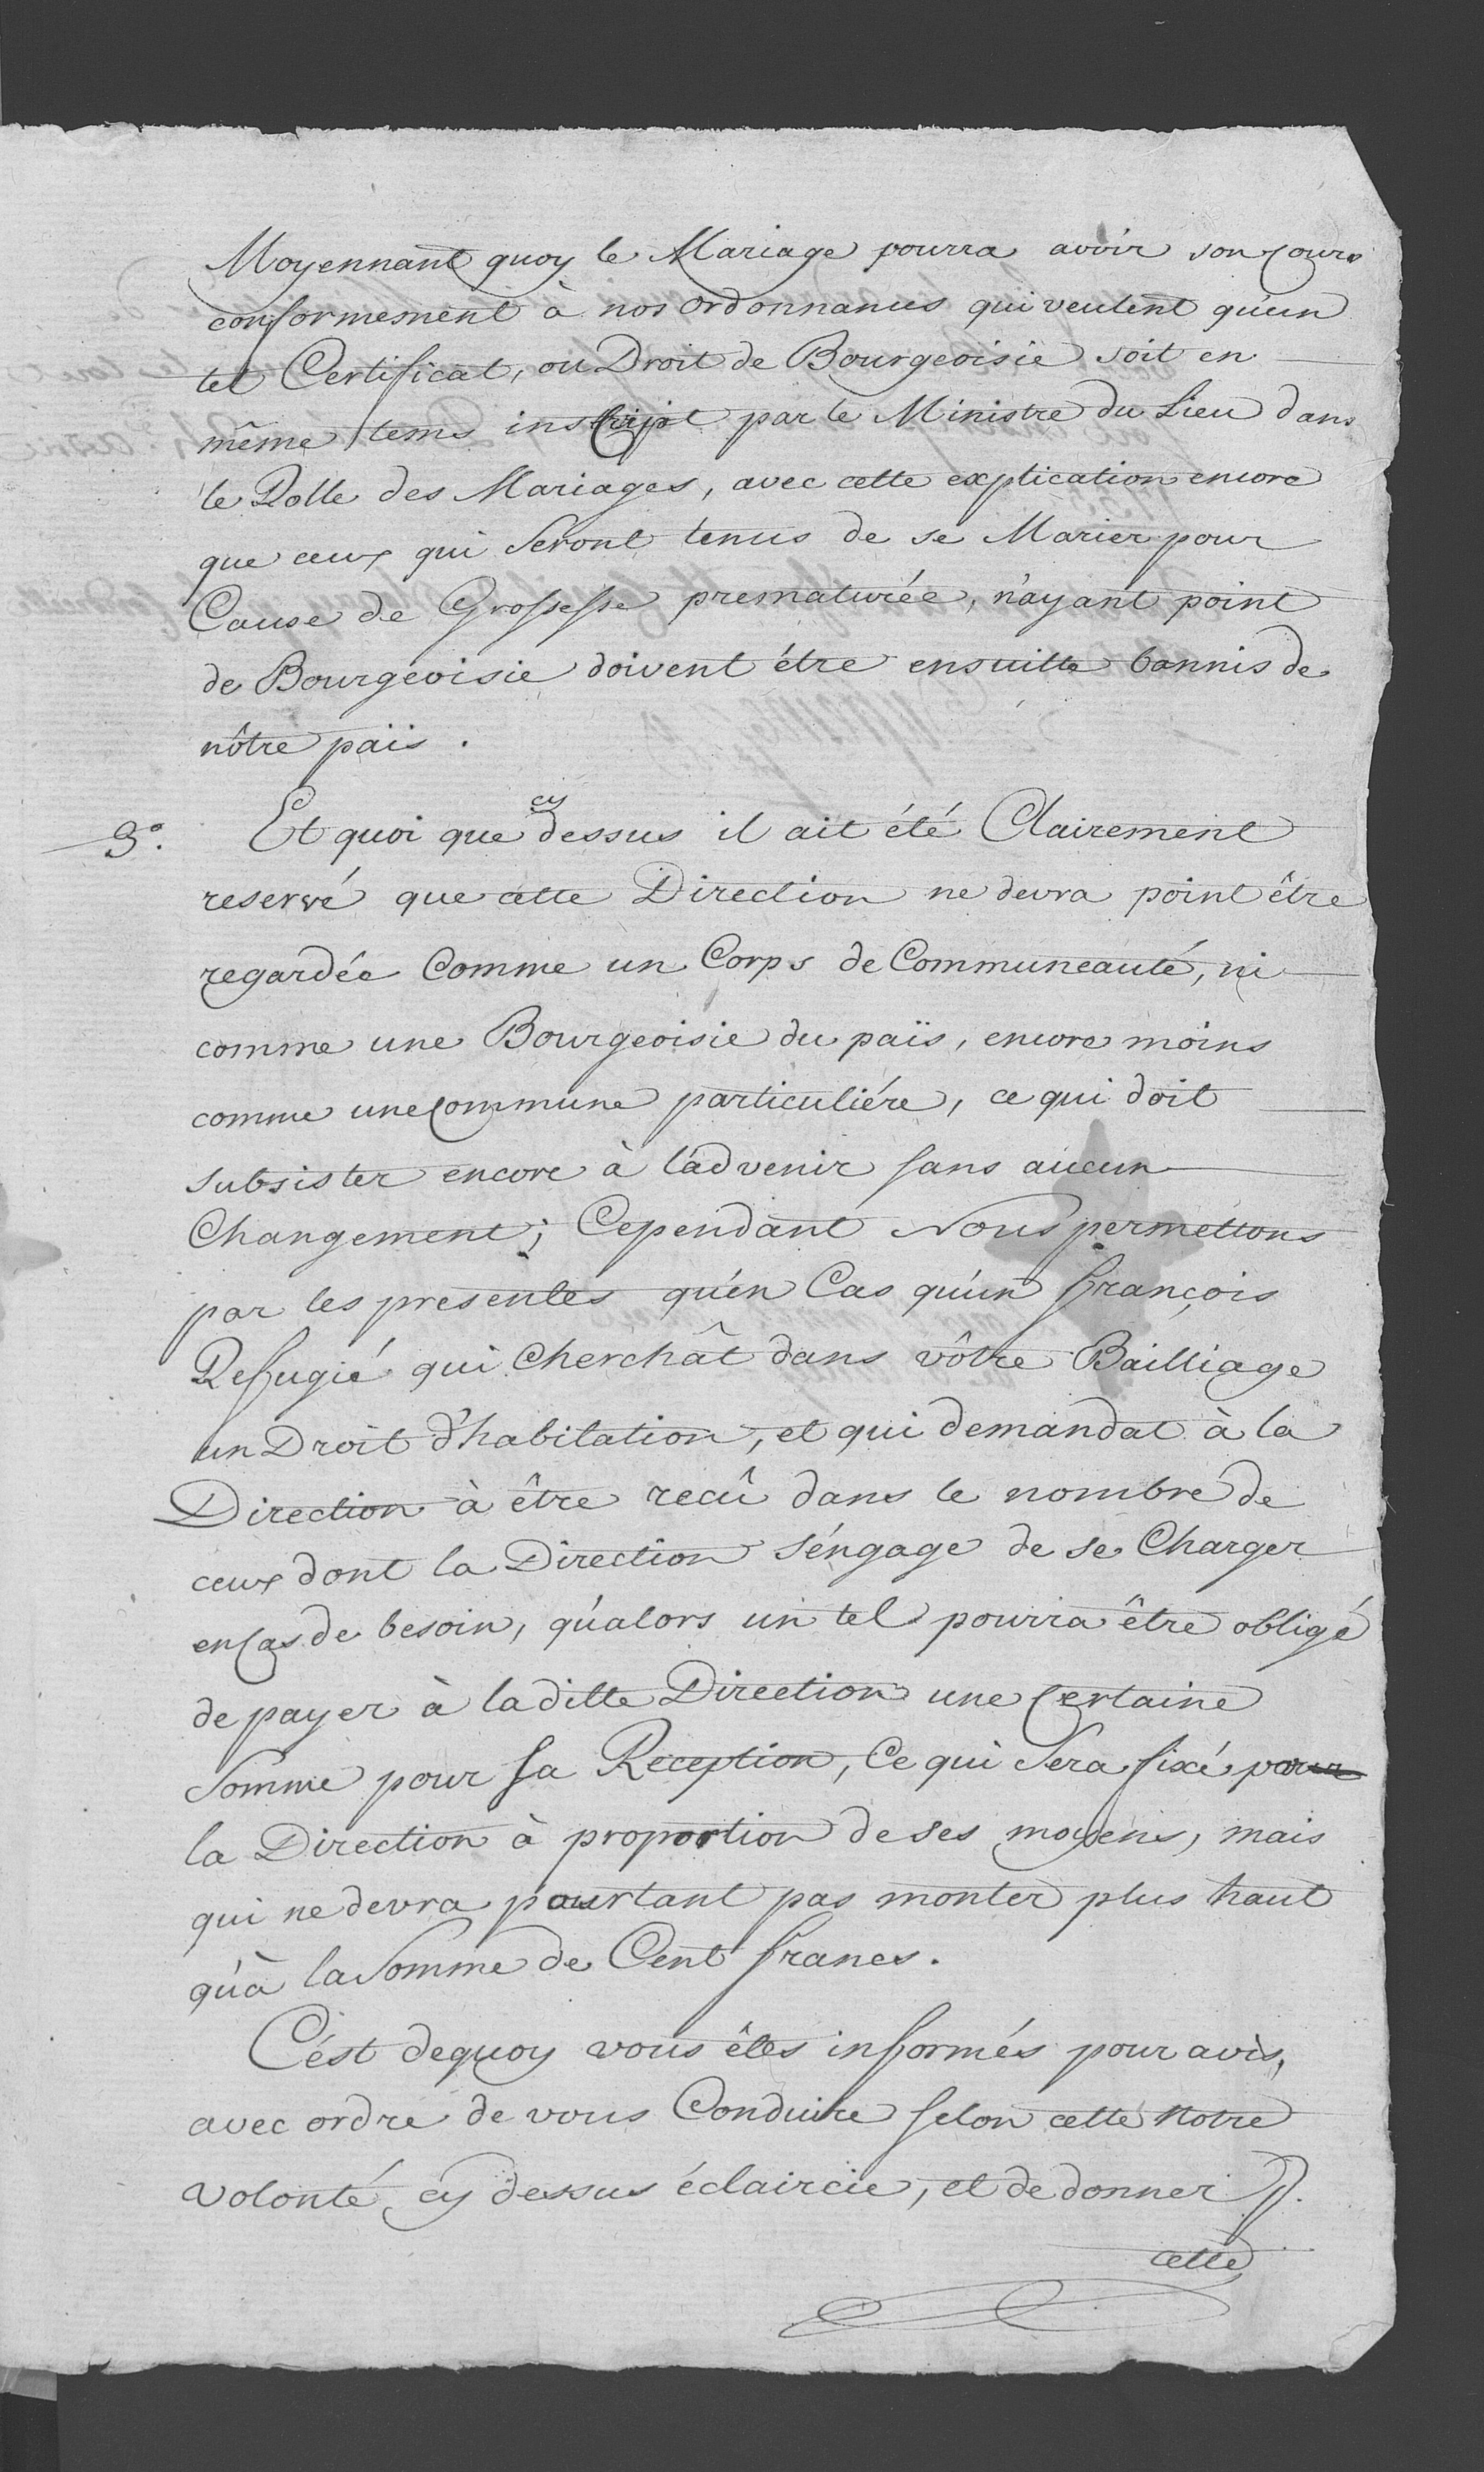 Moyennant quoy le Mariage pourra avoir son Cours
conformement à nos ordonnances qui veulent qu'un
tel Certificat, ou Droit de Bourgeoisie soit en
même tems inscript par le Ministre du Lieu dans
le Rolle des Mariages, avec cette explication encore
que ceux qui Seront tenus de se Marier pour
Cause de Grossesse prematurée, n'ayant point
de Bourgeoisie doivent étre ensuitte bannis de
nôtre païs.
3.° Et quoi que cy dessus il ait été Clairement
reservé que cette Direction ne devra point être
regardée Comme un Corps de Communeauté, ni
comme une Bourgeoisie du païs, encore moins
comme une Commune particuliére, ce qui doit
subsister encore à l'advenir sans aucun
Changement; Cependant Nous permettons
par les presentes qu'en Cas qu'un françois
Refugié qui Cherchât dans vôtre Bailliage
un Droit d'habitation, et qui demandat à la
Direction à être recû dans le nombre de
ceux dont la Direction s'éngage de se Charger
en Cas de besoin, qu'alors un tel pourra être obligé
de payer à laditte Direction une Certaine
Somme pour sa Reception, Ce qui Sera fixé par
la Direction à proportion de ses moyens, mais
qui ne devra pourtant pas monter plus haut
qu'à la Somme de Cent francs.
C'ést dequoy vous êtes informés pour avis,
avec ordre de vous Conduire selon cette Notre
Volonté, cy dessus éclaircie, et de donner
cette